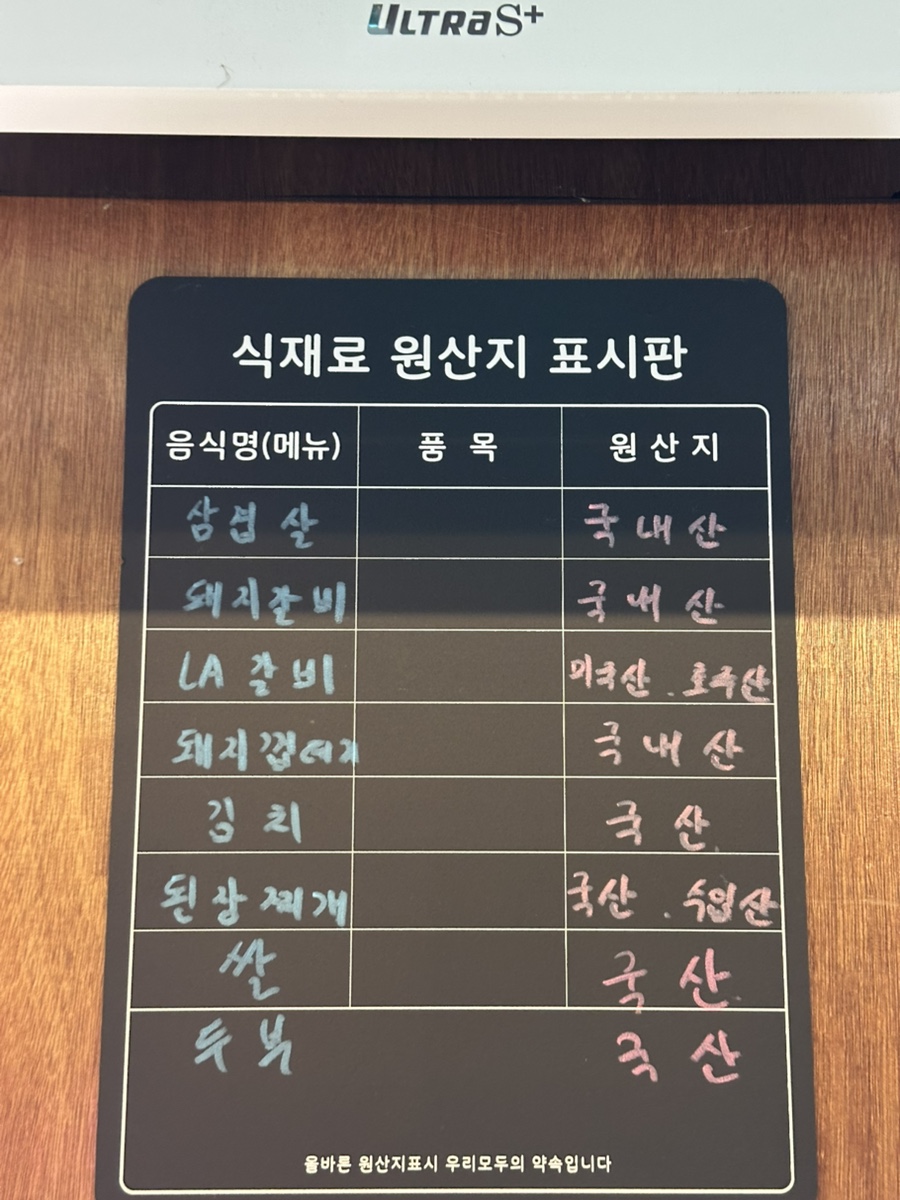 ULTRA S+
식재료 원산지 표시판
음식명(메뉴) 품 목 원 산 지
삼겹살 국내산
돼지갈비 국내산
LA 갈비 미국산 . 호주산
돼지껍데기 국내산
김치 국산.
된장찌개 국산 . 수입산
쌀 국산.
두부 국산
올바른 원산지표시 우리모두의 약속입니다